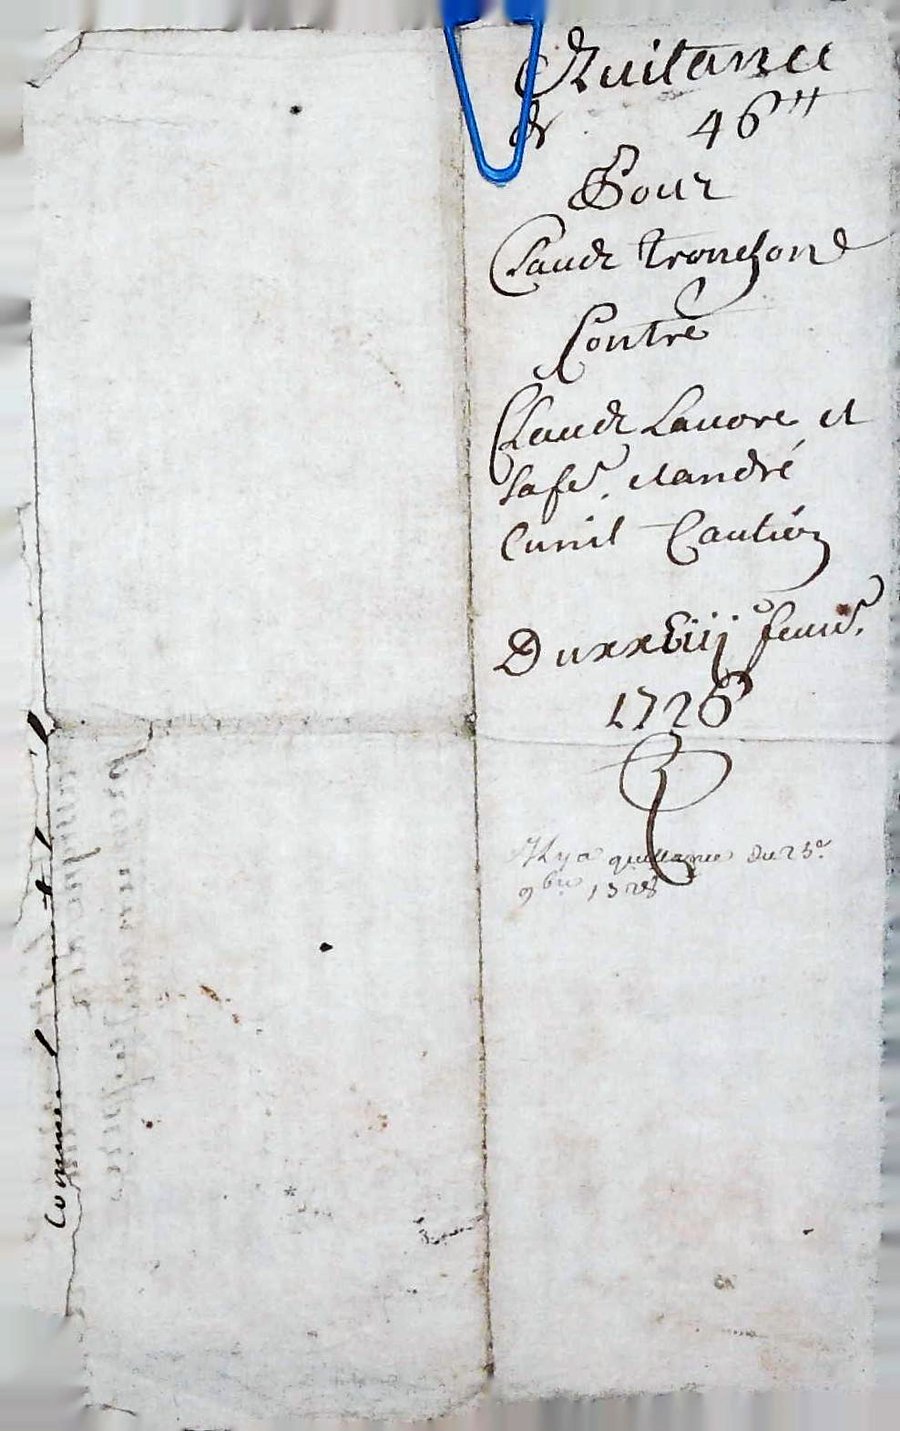 Quitance
de 46 ₶
Pour
Claude tronchond
Contre
Claude Lauore et
Safe. et andré
Cunit Caution
Du xxviij feur.
1726
Il y a quittance du 25e
9bre 1728
Comme